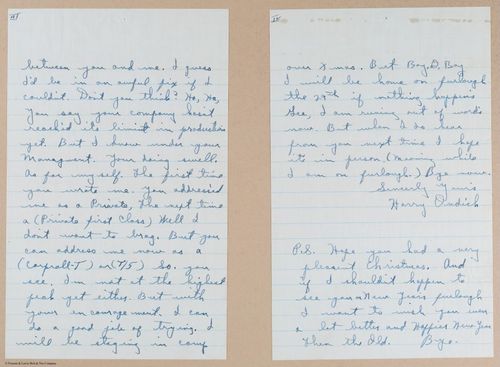 III
between you and me. I guess
I'd be in an awful fix if I
couldn't. Don't you think? Ha, Ha,
You say your company hasit
reach'd its limit in production
yet. But I know under your
Managment. Your doing swell.
As for my self. The first time
you wrote me. You addresed
me as a Private, The next time
a (Private first Class) Well I
don't want to brag. But you
can address me now as a
(Corprall-T) or (T/5) So. you
see. I'm not at the highest
peak yet either. But with
your in couragement. I can
do a good job of trying. I
will be staying in camp
IV
over Xmas. But Boy, O, Boy
I will be home on furlough
the 29th if nothing happins
Gee, I am runing out of words
now. But when I do hear
from you next time I hope
its in person (Meaning while
I am on furlough.) Bye now.
Sincerly Yours
Harry
P.S. Hope you had a very
pleasent Christmas. And
if I shouldn't happen to
see you New Years furlough
I want to wish you even
a lot better and Happier New Year
Then the Old. Bye.